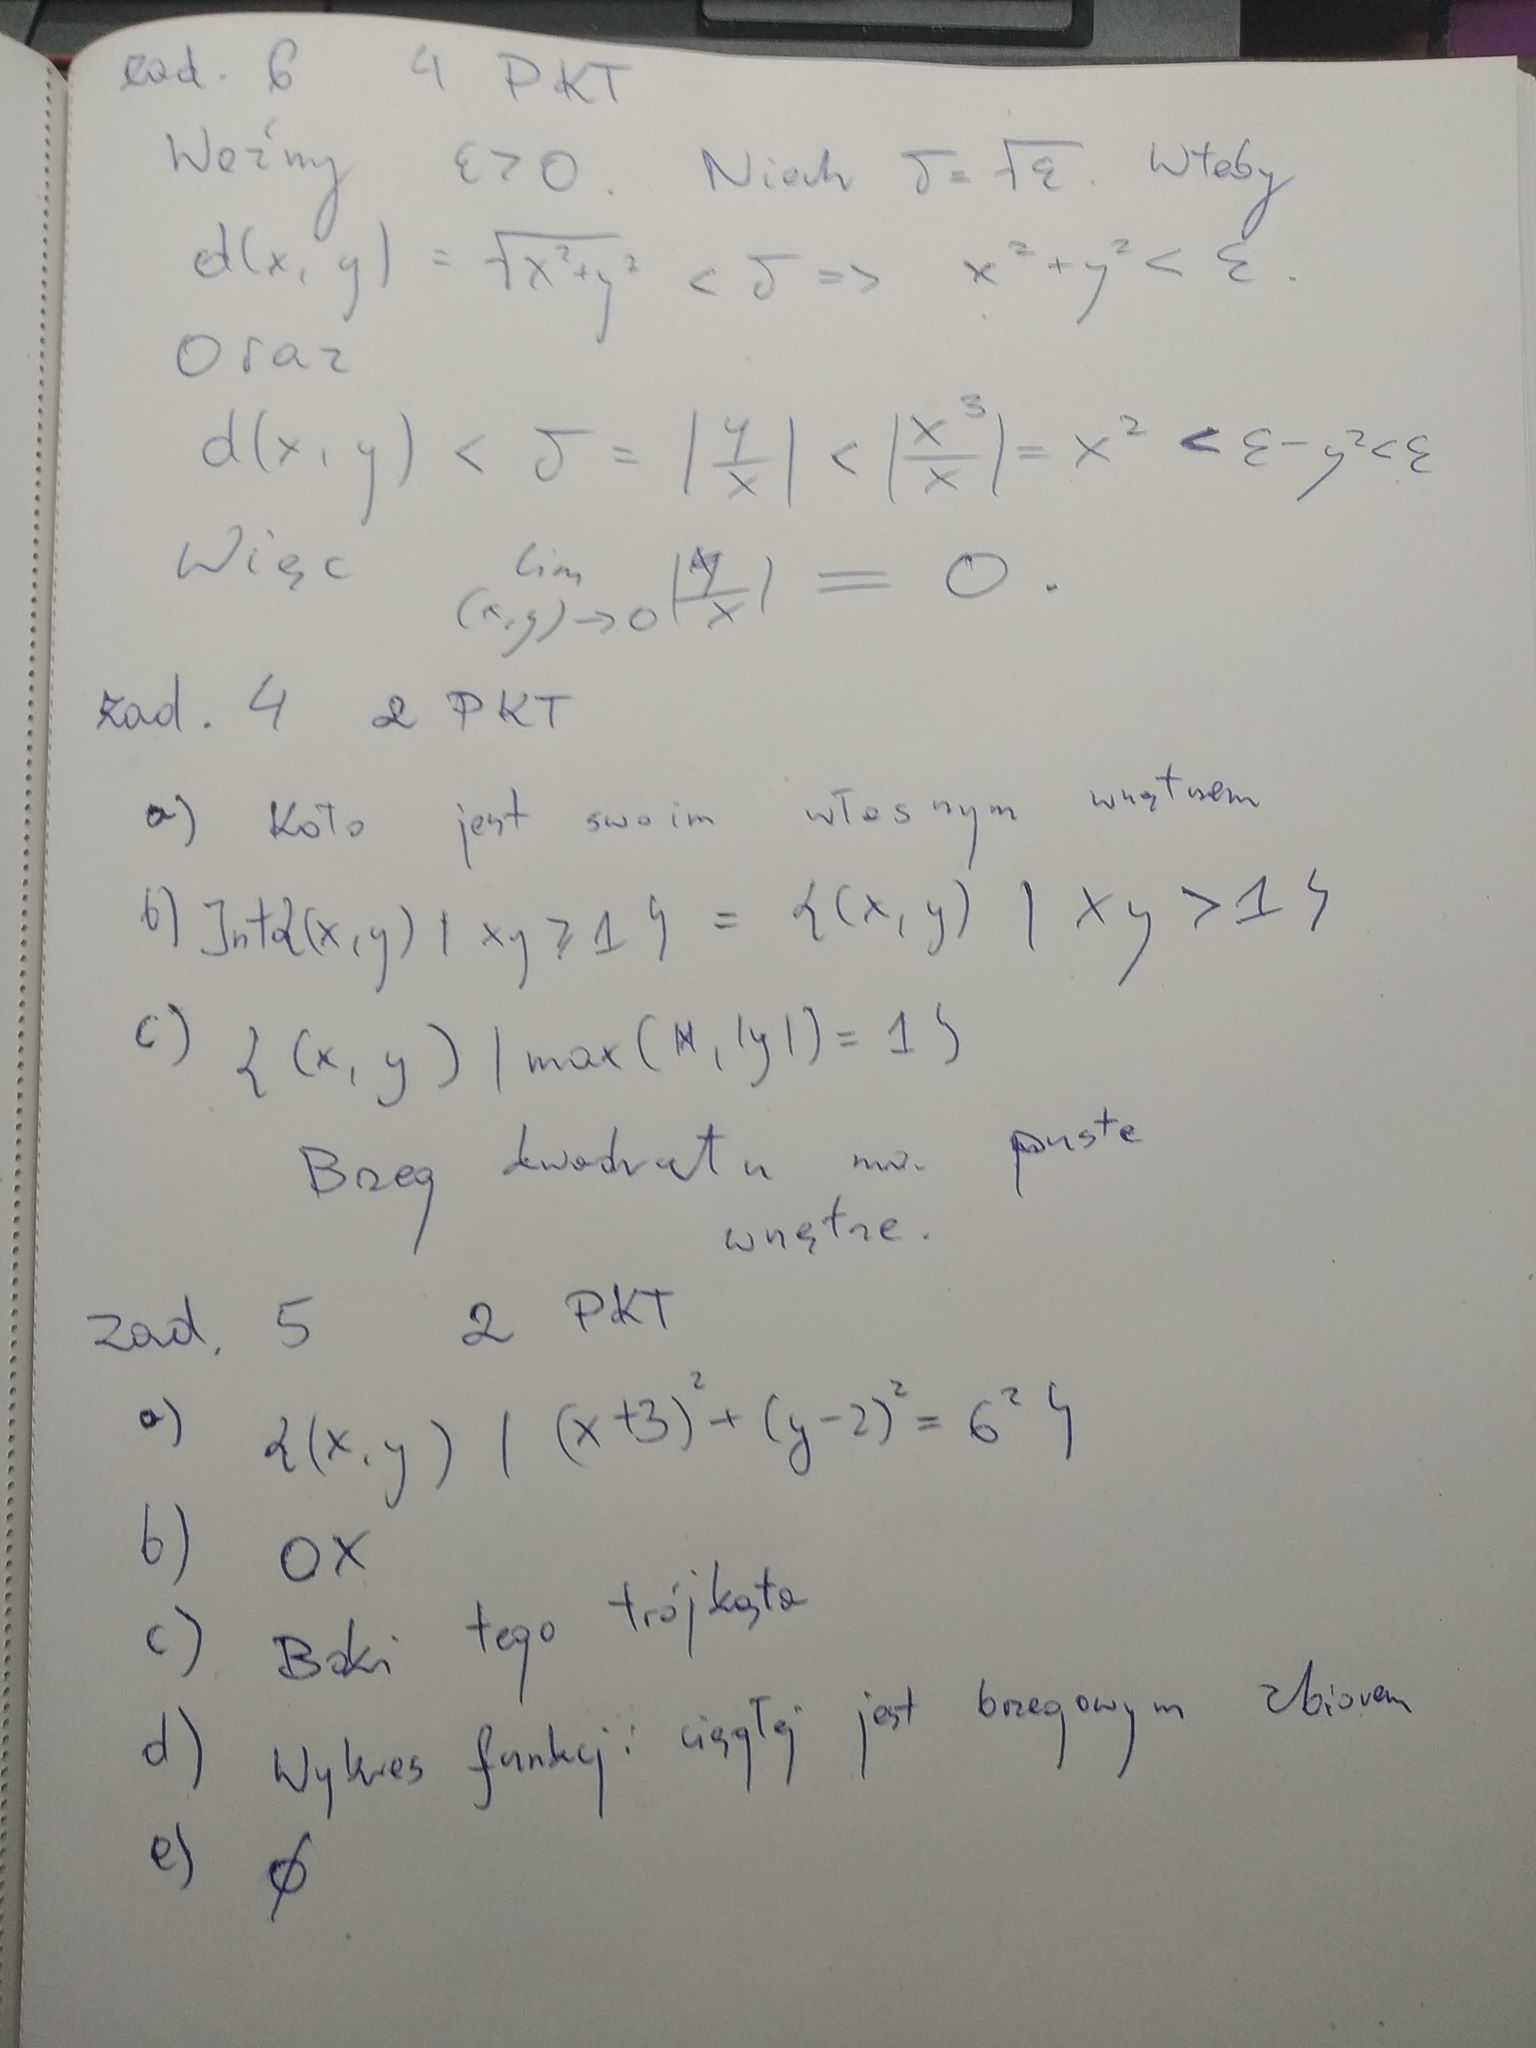 zad. 6 4 PKT
Weźmy ε>0. Niech δ=√ε. Wtedy
d(x,y) = √x²+y² < δ => x²+y² < ε.
Oraz
d(x,y) < δ = |y/x| < |x³/x| = x² < ε-y²<ε
Więc lim (x,y)->0 |y/x| = 0.
zad. 4 2 PKT
a) Koło jest swoim własnym wnętrzem
b) Int{(x,y) | xy ≥ 1} = {(x,y) | xy > 1}
c) {(x,y) | max(|x|,|y|) = 1}
Brzeg kwadratu ma puste
wnętrze.
zad. 5 2 PKT
a) {(x,y) | (x+3)²+(y-2)² = 6²}
b) OX
c) Boki tego trójkąta
d) Wykres funkcji ciągłej jest brzegowym zbiorem
e) ∅